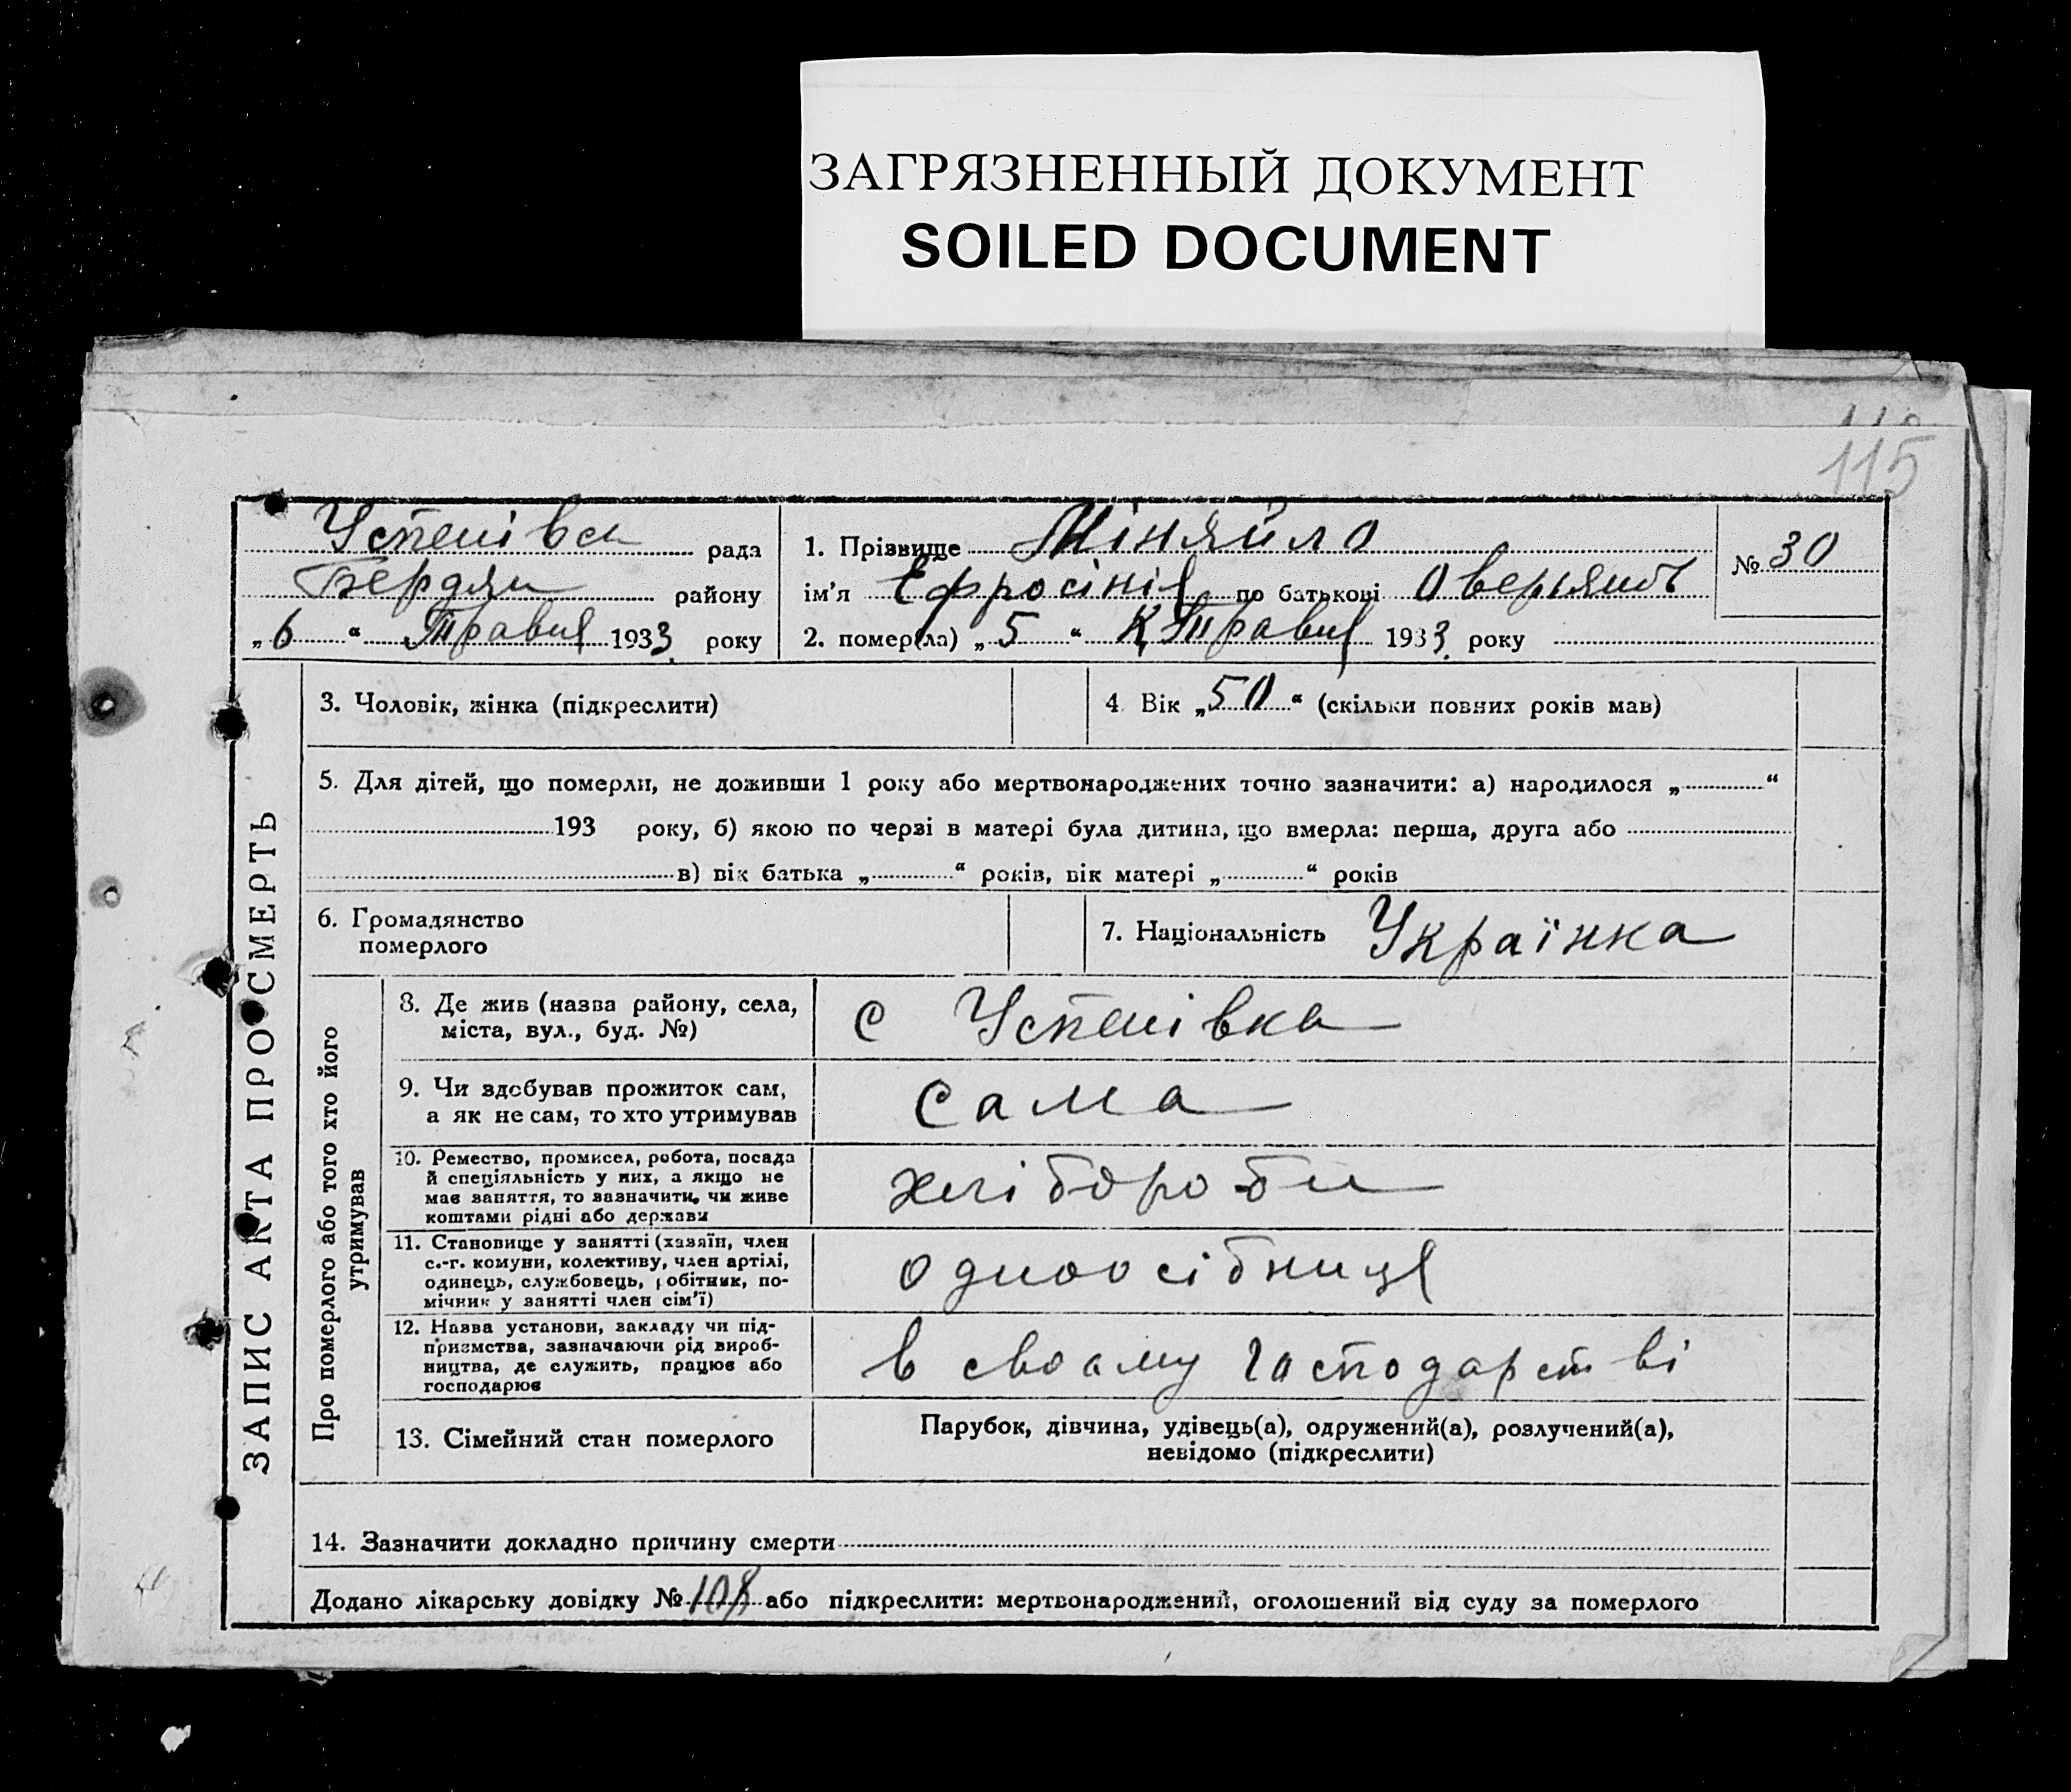 ЗАГРЯЗНЕННЫЙ ДОКУМЕНТ
SOILED DOCUMENT
115
Успенівськ рада
Бердян району
„6“ Травня 1933 року
1. Прізвище Міняйло
ім’я Єфросінія по батькові
2. помер(ла) „5“ Травня 1933 року
№ 30
ЗАПИС АКТА ПРО СМЕРТЬ
3. Чоловік, жінка (підкреслити)
4 Вік „50“ (скільки повних років мав)
5. Для дітей, що померли, не доживши 1 року або мертвонароджених точно зазначити: а) народилося „ “
193 року, б) якою по черзі в матері була дитина, що вмерла: перша, друга або
в) вік батька „ “ років, вік матері „ “ років
6. Громадянство
померлого
7. Національність Українка
Про померлого або того хто його
утримував
8. Де жив (назва району, села,
міста, вул., буд. №)
с Успенівка
9. Чи здобував прожиток сам,
а як не сам, то хто утримував
сама
10. Ремество, промисел, робота, посада
й спеціяльність у них, а якщо не
мав заняття, то зазначити, чи живе
коштами рідні або держави
хліборобн
11. Становище у занятті (хазяїн, член
с.-г. комуни, колективу, член артілі,
одинець, службовець, робітник, по-
мічник у занятті член сім’ї)
одноосібниця
12. Назва установи, закладу чи під-
приємства, зазначаючи рід вироб-
ництва, де служить, працює або
господарює
в своему господарстві
13. Сімейний стан померлого
Парубок, дівчина, удівець(а), одружений(а), розлучений(а),
невідомо (підкреслити)
14. Зазначити докладно причину смерти
Додано лікарську довідку № 108 або підкреслити: мертвонароджений, оголошений від суду за померлого